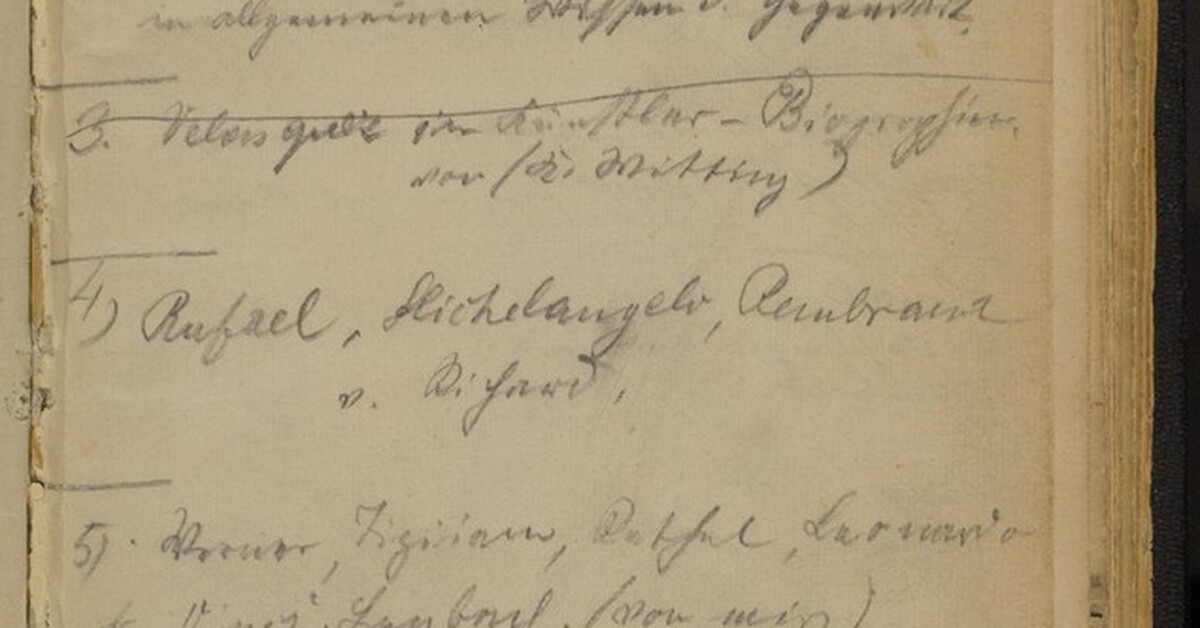 in allgemeinen Wissen d. Gegenwart
3. Velasquez in Künstler-Biographien.
von (K. Witting)
4) Rafael, Michelangelo, Rembrant
v. Richard,
5). Werner, Tiziian, Rethel, Leonardo
Vinci, Lenbach. (von mir)